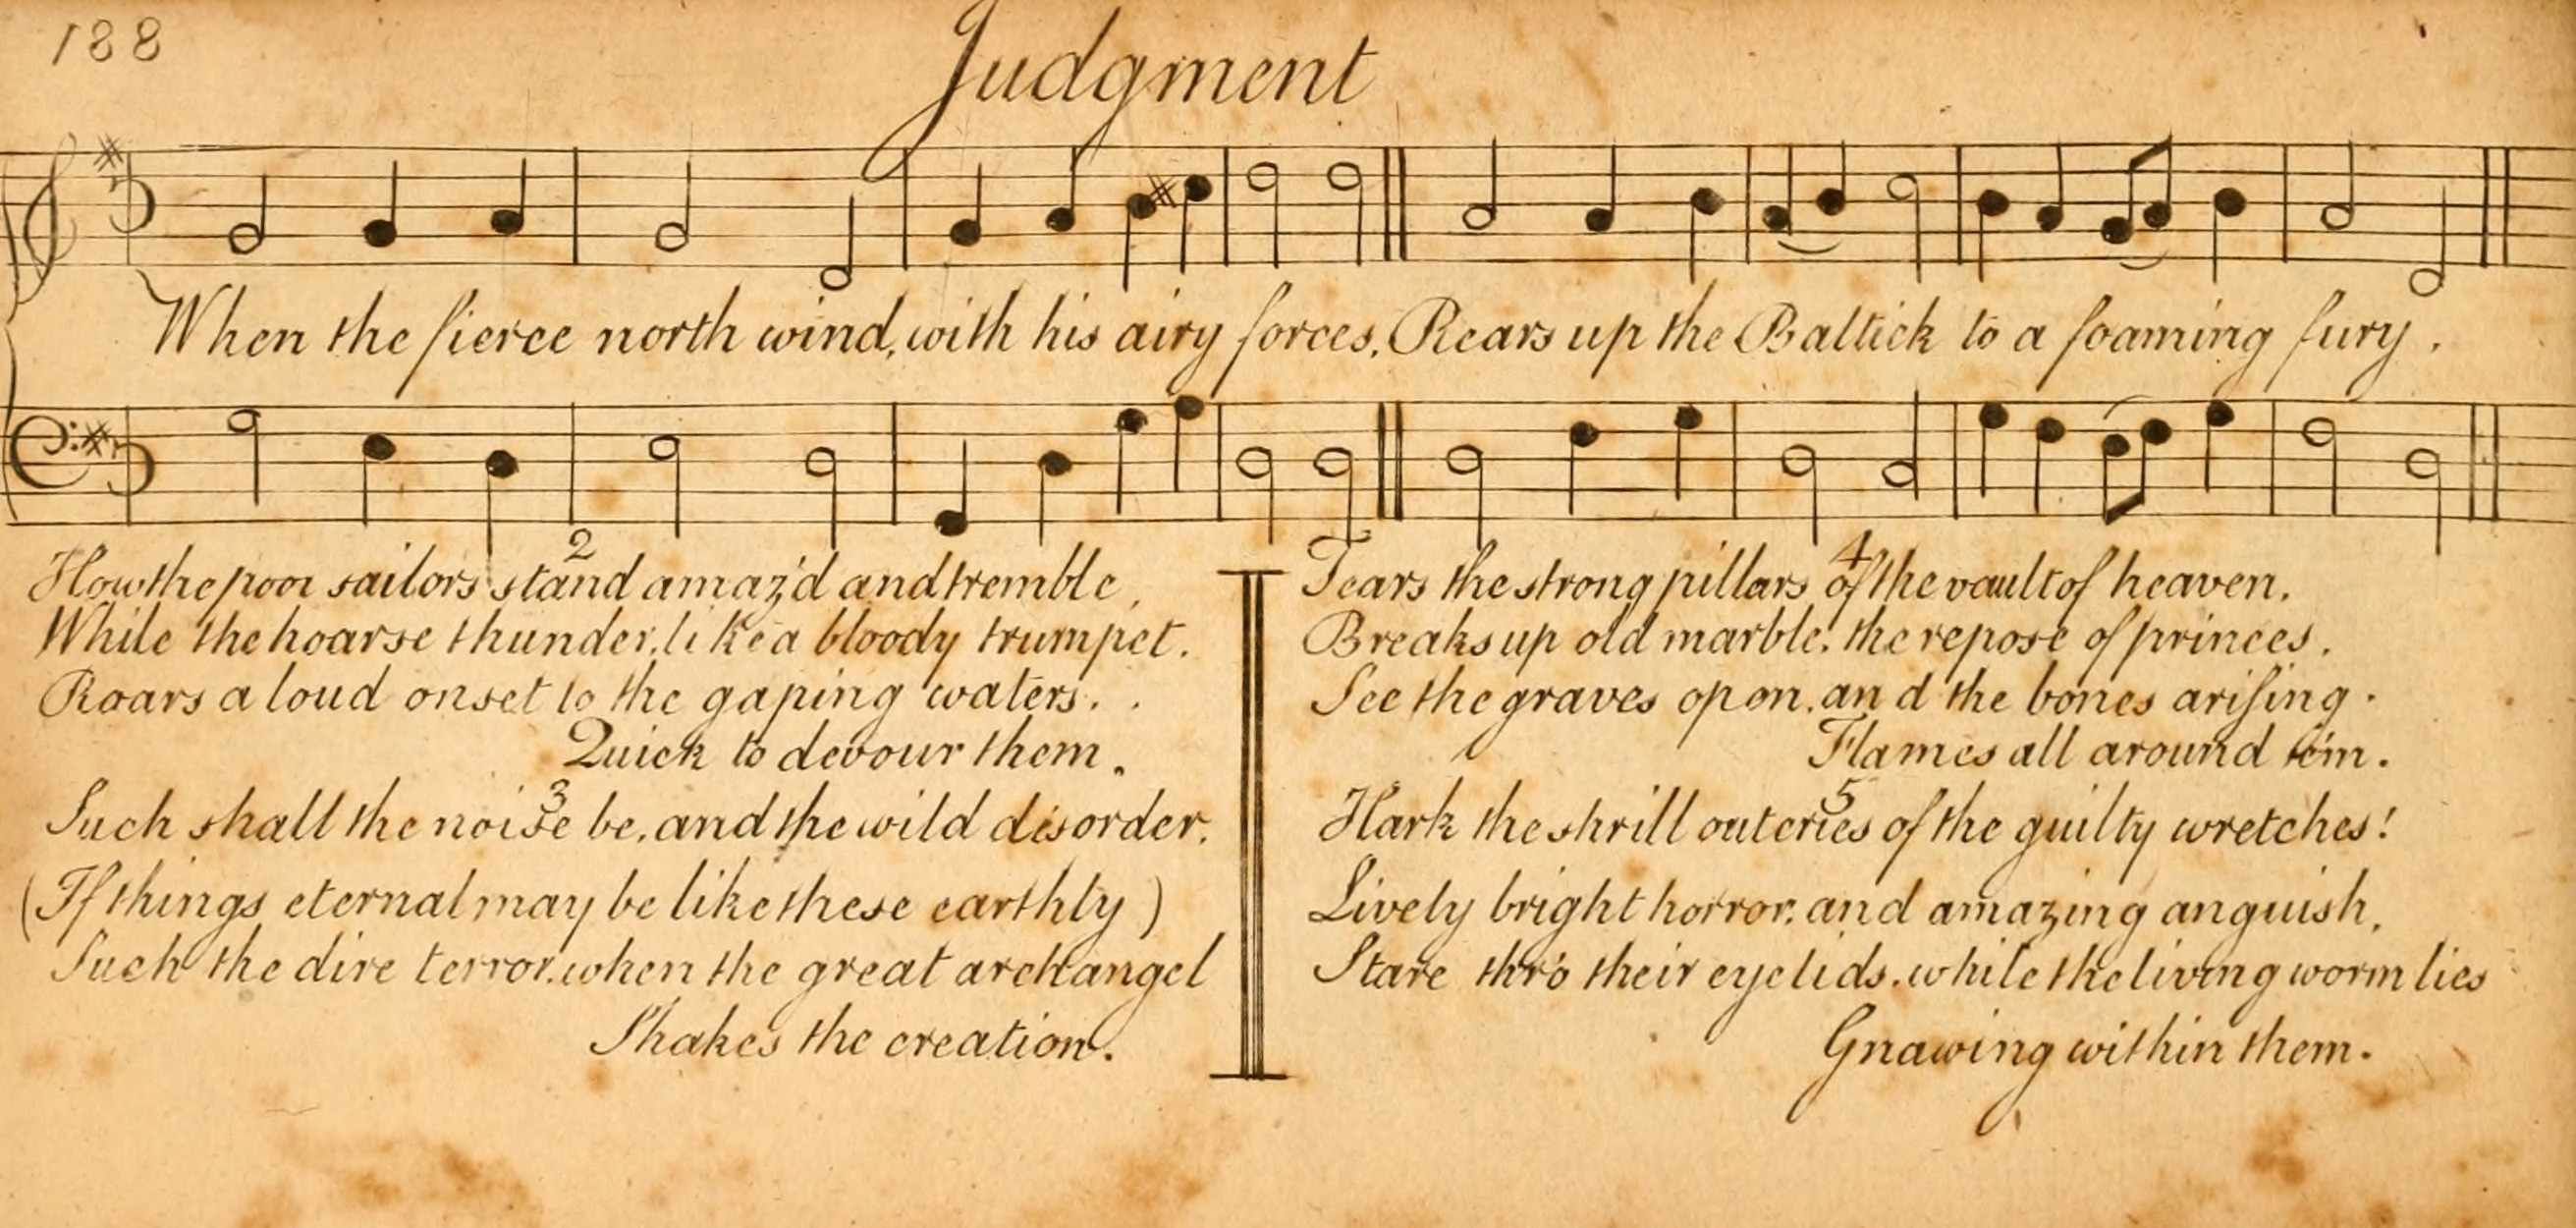 188
Judgment
When the fierce north wind, with his airy forces, Rears up the Baltick to a foaming fury.
2
How the poor sailors stand amaz'd and tremble,
While the hoarse thunder, like a bloody trumpet.
Roars a loud onset to the gaping waters.
Quick to devour them.
3
Such shall the noise be, and the wild disorder.
(If things eternal may be like these earthly)
Such the dire terror. when the great archangel
Shakes the creation.
4
Tears the strong pillars of the vault of heaven.
Breaks up old marble. the repose of princes.
See the graves opon. and the bones arising.
Flames all around 'em.
5
Hark the shrill outcries of the guilty wretches!
Lively bright horror. and amazing anguish.
Stare thro' their eyelids. while the living worm lies
Gnawing within them.